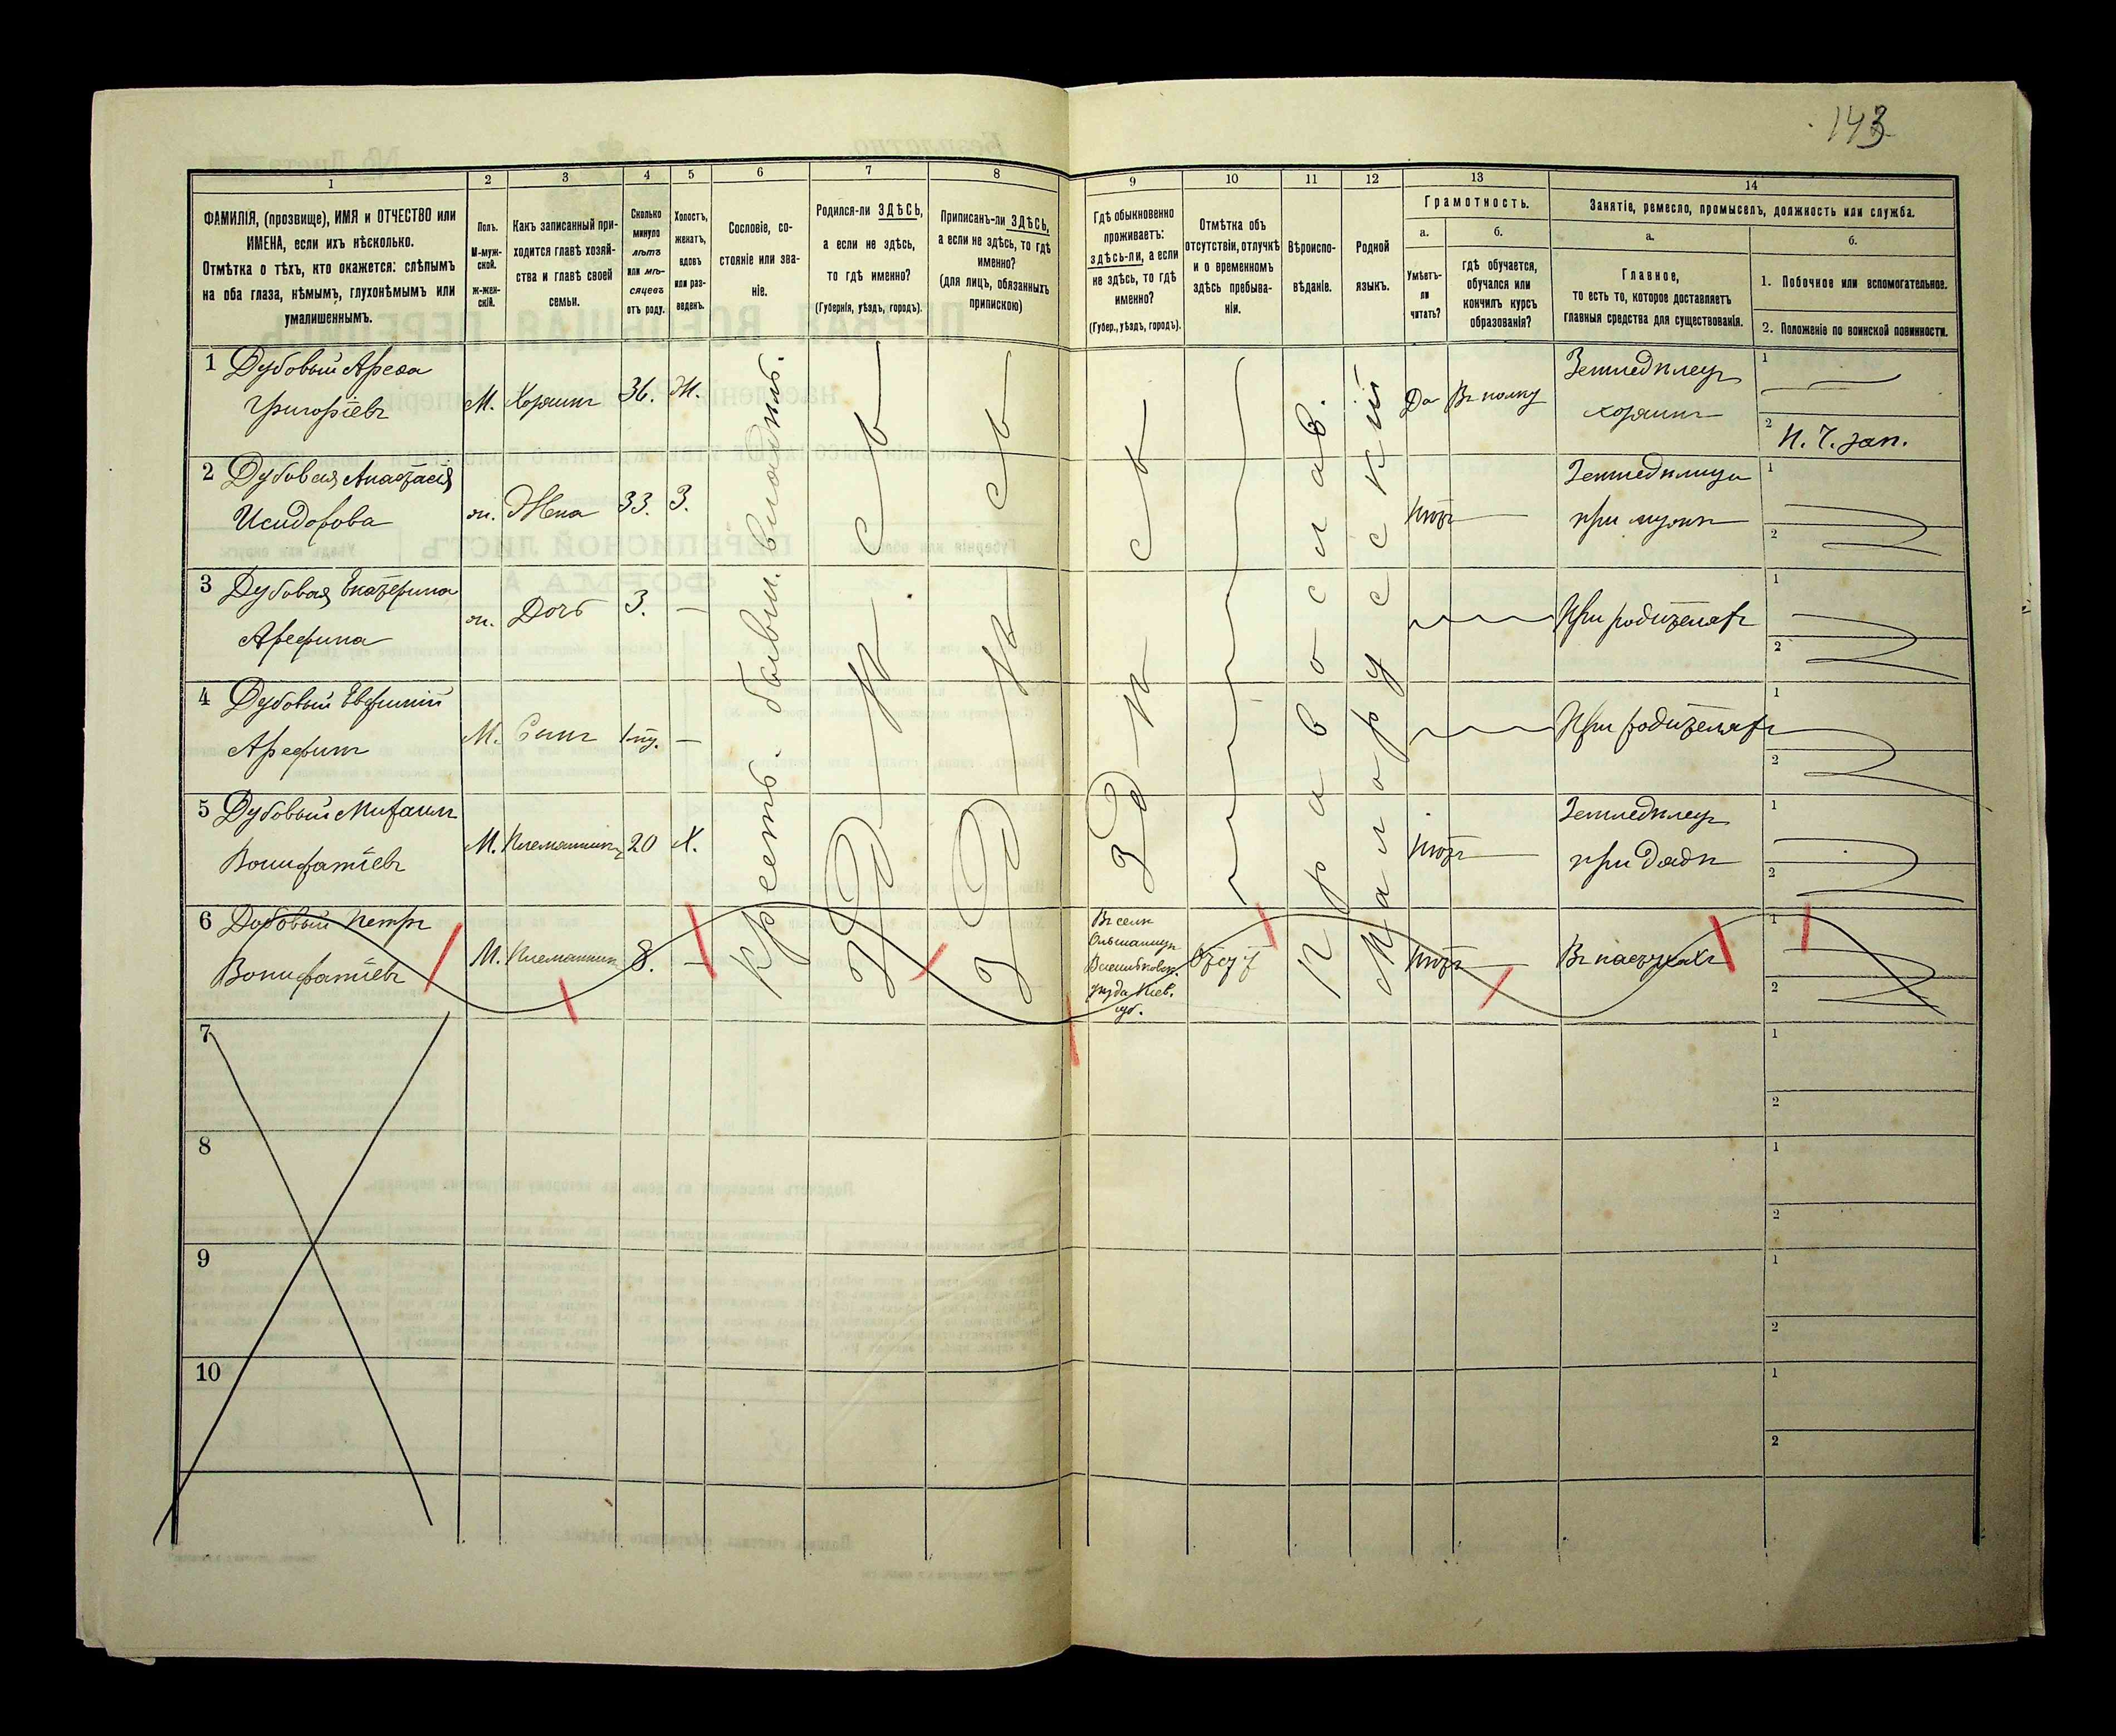 143
1 2 3 4 5 6 7 8 9 10 11 12 13 14
ФАМИЛІЯ, (прозвище), ИМЯ и ОТЧЕСТВО или
ИМЕНА, если ихъ нѣсколько.
Отмѣтка о тѣхъ, кто окажется: слѣпымъ
на оба глаза, нѣмымъ, глухонѣмымъ или
умалишеннымъ.
Полъ.
М-муж-
ской.
Ж-жен-
скій.
Какъ записанный при-
ходится главѣ хозяй-
ства и главѣ своей
семьи.
Сколько
минуло
лѣтъ
или мѣ-
сяцевъ
отъ роду.
Холостъ,
женатъ,
вдовъ
или раз-
веденъ.
Сословіе, со-
стояніе или зва-
ніе.
Родился-ли ЗДѢСЬ,
а если не здѣсь,
то гдѣ именно?
(Губернія, уѣздъ, городъ).
Приписанъ-ли ЗДѢСЬ,
а если не здѣсь, то гдѣ
именно?
(для лицъ, обязанныхъ
припискою)
Гдѣ обыкновенно
проживаетъ:
здѣсь-ли, а если
не здѣсь, то гдѣ
именно?
(Губер., уѣздъ, городъ).
Отмѣтка объ
отсутствіи, отлучкѣ
и о временномъ
здѣсь пребыва-
ніи.
Вѣроиспо-
вѣданіе.
Родной
языкъ.
Грамотность.
а.
Умѣетъ-
ли
читать?
б.
гдѣ обучается,
обучался или
кончилъ курсъ
образованія?
Занятіе, ремесло, промыселъ, должность или служба.
а.
Главное,
то есть то, которое доставляетъ
главныя средства для существованія.
б.
1. Побочное или вспомогательное.
2. Положеніе по воинской повинности.
1 Дубовый Арефа
Григоріевъ
М. Хозяинъ 36. Ж.
Крестъ. бывш. владѣль.
Здѣсь
Здѣсь
Здѣсь
Православ.
Малорусскій
Да Въ полку
Земледѣлецъ
хозяинъ
1
2 И. Ч. зап.
2 Дубовая Анастасія
Исидорова
ж. Жена 33. З.
Нѣтъ
Земледѣлица
при мужѣ
1
2
3 Дубовая Екатерина
Арефина
ж. Дочь 3. —
При родителяхъ
1
2
4 Дубовый Евфимій
Арефинъ
М. Сынъ —
При родителяхъ
1
2
5 Дубовый Михаилъ
Вонифатіевъ
М. Племянникъ 20 Х.
Нѣтъ
Земледѣлецъ
при дядѣ
1
2
6 Дубовый Петръ
Вонифатіевъ
М. Племянник 8. —
Въ селѣ
Ольшаницѣ
Васильковск.
уѣзда Кіев.
губ.
Отсут
Нѣтъ
Въ пастухахъ
1
2
7
1
2
8
1
2
9
1
2
10
1
2